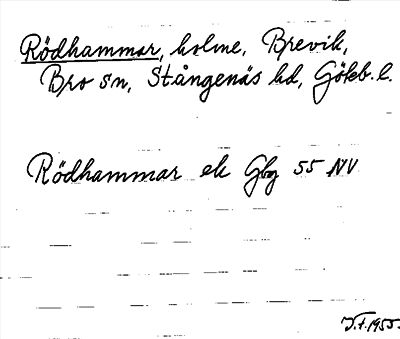 Rödhammar, holme, Brevik,
Bro sn, Stångenäs hd, Göteb. l.
Rödhammar ek Gbg 55 NV
J.f. 1955.